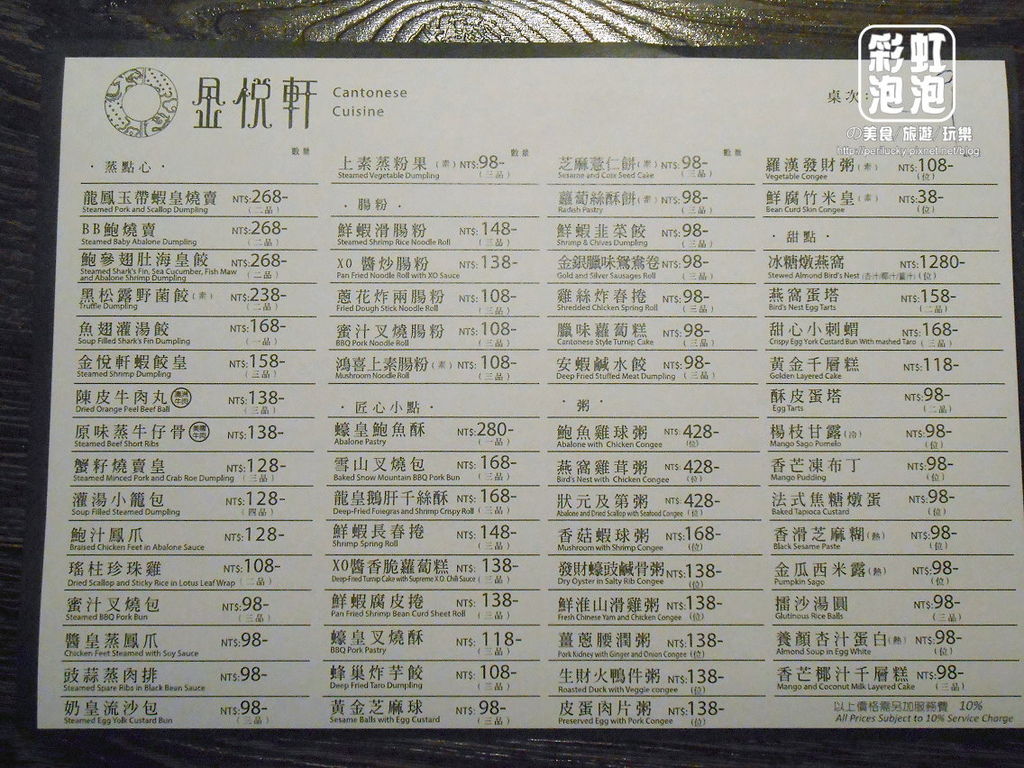 金悅軒 Cantonese Cuisine
彩虹泡泡
の美食/旅遊/玩樂
http://perilucky.pixnet.net/blog
桌次:
數量
·蒸點心·
龍鳳玉帶蝦皇燒賣 NT$:268-
Steamed Pork and Scallop Dumpling (二品)
BB鮑燒賣 NT$:268-
Steamed Baby Abalone Dumpling (二品)
鮑參翅肚海皇餃 NT$:268-
Steamed Shark's Fin, Sea Cucumber, Fish Maw
and Abalone Shrimp Dumpling (二品)
黑松露野菌餃(素) NT$:238-
Truffle Dumpling (二品)
魚翅灌湯餃 NT$:168-
Soup Filled Shark's Fin Dumpling (一品)
金悅軒蝦餃皇 NT$:158-
Steamed Shrimp Dumpling (三品)
陳皮牛肉丸 澳洲牛肉 NT$:138-
Dried Orange Peel Beef Ball (三品)
原味蒸牛仔骨 美國牛肉 NT$:138-
Steamed Beef Short Ribs
蟹籽燒賣皇 NT$:128-
Steamed Minced Pork and Crab Roe Dumpling (三品)
灌湯小籠包 NT$:128-
Soup Filled Steamed Dumpling (四品)
鮑汁鳳爪 NT$:128-
Braised Chicken Feet in Abalone Sauce
瑤柱珍珠雞 NT$:108-
Dried Scallop and Sticky Rice in Lotus Leaf Wrap (二品)
蜜汁叉燒包 NT$:98-
Steamed BBQ Pork Bun (三品)
醬皇蒸鳳爪 NT$:98-
Chicken Feet Steamed with Soy Sauce
豉蒜蒸肉排 NT$:98-
Steamed Spare Ribs in Black Bean Sauce
奶皇流沙包 NT$:98-
Steamed Egg Yolk Custard Bun (三品)
數量
上素蒸粉果(素) NT$:98-
Steamed Vegetable Dumpling (三品)
·腸粉·
鮮蝦滑腸粉 NT$:148-
Steamed Shrimp Rice Noodle Roll (三品)
XO醬炒腸粉 NT$:138-
Pan Fried Noodle Roll with XO Sauce
蔥花炸兩腸粉 NT$:108-
Fried Dough Stick Noodle Roll (三品)
蜜汁叉燒腸粉 NT$:108-
BBQ Pork Noodle Roll (三品)
鴻喜上素腸粉(素) NT$:108-
Mushroom Noodle Roll (三品)
·匠心小點·
蠔皇鮑魚酥 NT$:280-
Abalone Pastry (一品)
雪山叉燒包 NT$:168-
Baked Snow Mountain BBQ Pork Bun (三品)
龍皇鵝肝千絲酥 NT$:168-
Deep-Fried Foiegras and Shrimp Crispy Roll (三品)
鮮蝦長春捲 NT$:148-
Shrimp Spring Roll (三品)
XO醬香脆蘿蔔糕 NT$:138-
Deep-Fried Turnip Cake with Supreme X.O. Chili Sauce (三品)
鮮蝦腐皮捲 NT$:138-
Pan Fried Shrimp Bean Curd Sheet Roll (三品)
蠔皇叉燒酥 NT$:118-
BBQ Pork Pastry (三品)
蜂巢炸芋餃 NT$:108-
Deep Fried Taro Dumpling (三品)
黃金芝麻球 NT$:98-
Sesame Balls with Egg Custard (三品)
數量
芝麻薏仁餅(素) NT$:98-
Sesame and Coix Seed Cake (三品)
蘿蔔絲酥餅(素) NT$:98-
Radish Pastry (三品)
鮮蝦韭菜餃 NT$:98-
Shrimp & Chives Dumpling (三品)
金銀臘味鴛鴦卷 NT$:98-
Gold and Silver Sausages Roll (三品)
雞絲炸春捲 NT$:98-
Shredded Chicken Spring Roll (三品)
臘味蘿蔔糕 NT$:98-
Cantonese Style Turnip Cake (三品)
安蝦鹹水餃 NT$:98-
Deep Fried Stuffed Meat Dumpling (三品)
·粥·
鮑魚雞球粥 NT$:428-
Abalone with Chicken Congee (位)
燕窩雞茸粥 NT$:428-
Bird's Nest with Chicken Congee (位)
狀元及第粥 NT$:428-
Abalone and Dried Scallop with Seafood Congee (位)
香菇蝦球粥 NT$:168-
Mushroom with Shrimp Congee (位)
發財蠔豉鹹骨粥 NT$:138-
Dry Oyster in Salty Rib Congee (位)
鮮淮山滑雞粥 NT$:138-
Fresh Chinese Yam and Chicken Congee (位)
薑蔥腰潤粥 NT$:138-
Pork Kidney with Ginger and Onion Congee (位)
生財火鴨件粥 NT$:138-
Roasted Duck with Veggie congee (位)
皮蛋肉片粥 NT$:138-
Preserved Egg with Pork Congee (位)
羅漢發財粥(素) NT$:108-
Vegetable Congee (位)
鮮腐竹米皇(素) NT$:38-
Bean Curd Skin Congee (位)
·甜點·
冰糖燉燕窩 NT$:1280-
Stewed Almond Bird's Nest (杏汁/椰汁/薑汁) (位)
燕窩蛋塔 NT$:158-
Bird's Nest Egg Tarts (二品)
甜心小刺蝟 NT$:168-
Crispy Egg York Custard Bun With mashed Taro (三品)
黃金千層糕 NT$:118-
Golden Layered Cake
酥皮蛋塔 NT$:98-
Egg Tarts (二品)
楊枝甘露(冷) NT$:98-
Mango Sago Pomelo (位)
香芒凍布丁 NT$:98-
Mango Pudding (位)
法式焦糖燉蛋 NT$:98-
Baked Tapioca Custard (位)
香滑芝麻糊(熱) NT$:98-
Black Sesame Paste (位)
金瓜西米露(熱) NT$:98-
Pumpkin Sago (位)
擂沙湯圓 NT$:98-
Glutinous Rice Balls (三品)
養顏杏汁蛋白(熱) NT$:98-
Almond Soup in Egg White (位)
香芒椰汁千層糕 NT$:98-
Mango and Coconut Milk Layered Cake (三品)
以上價格需另加服務費 10%
All Prices Subject to 10% Service Charge